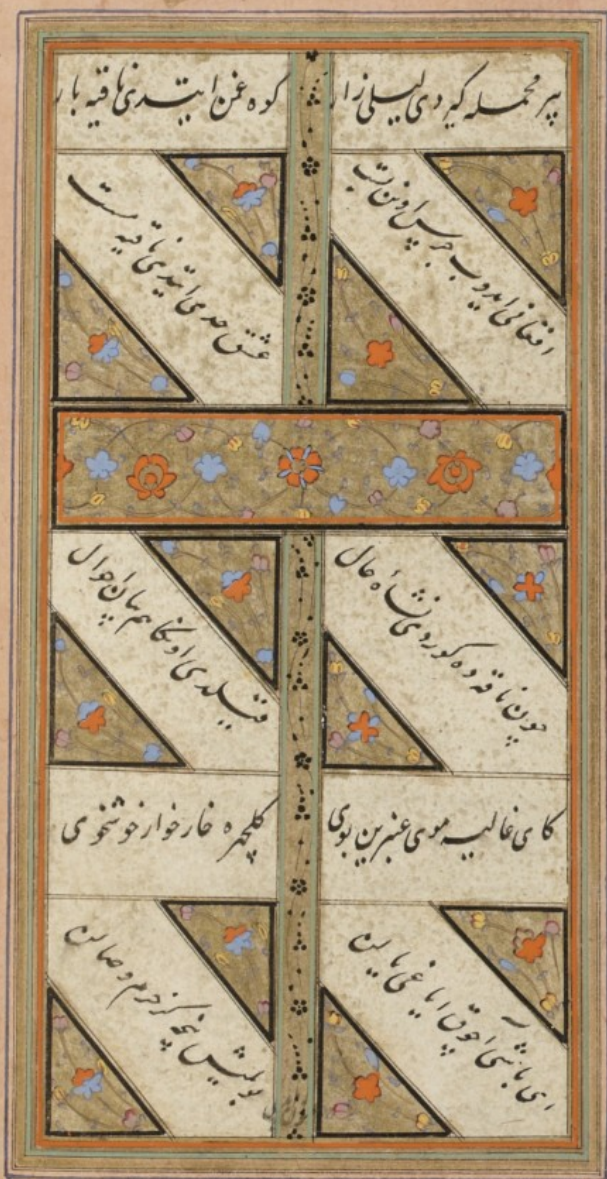 بیر محمله گیردی لیلی زار
کوه غمن ایتدی ناقیه بار
افغانی ایدوب جرس اونن پست
عشق حدی ایتدی ناقیه مست
چون ناقه ده کوردی نشأه حال
قیلدی اونکا هم بیان احوال
کای غالیه موی عنبرین بوی
گلچهره خارخوار خوشخوی
ای باشی اچوق ایاغی یالین
بولمیش نچه کز حرم وصالین